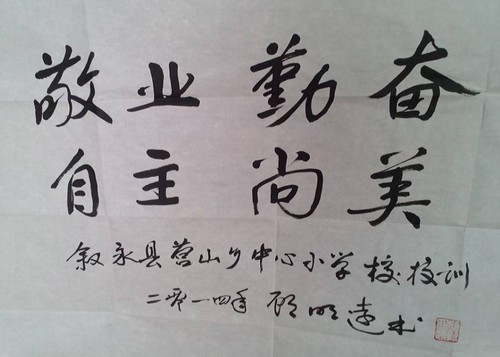 敬业 勤奋
自主 尚美
叙永县营山乡中心小学校校训
二零一四年 顾明远书